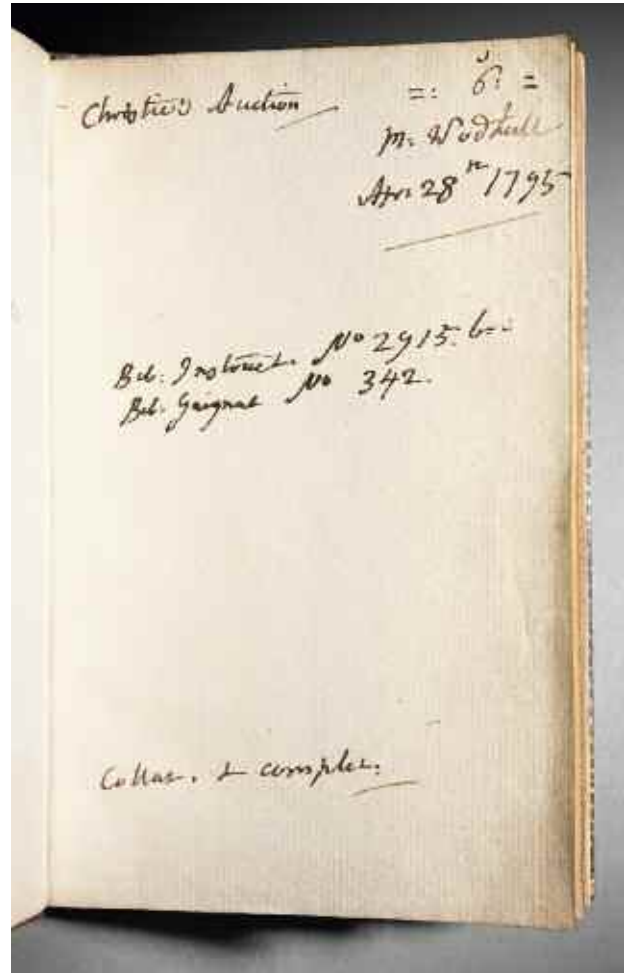 Christie's Auction =: 6s: =
M: Wodhull
Apr: 28th 1795
Bib: Instruct. No 2915. b=:
Bib: Gaignat No 342.
Collat. & complet.